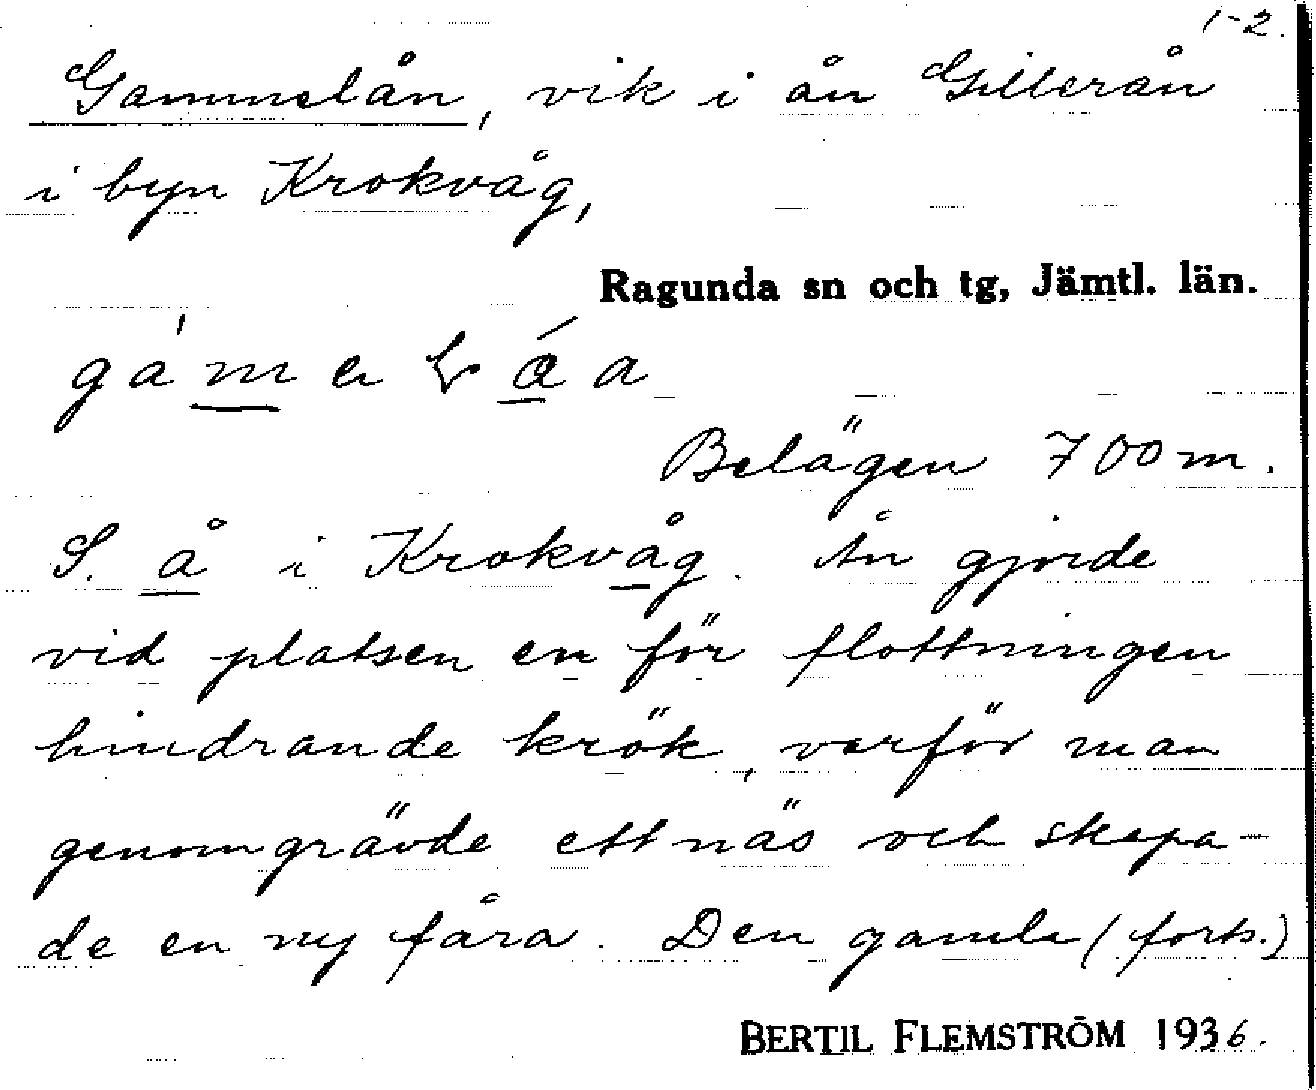 1-2.
Gammelån, vik i ån Gillerån
i byn Krokvåg,
Ragunda sn och tg, Jämtl. län.
Belägen 700 m.
S. å i Krokvåg. Ån gjorde
vid platsen en för flottningen
hindrande krök, varför man
genomgrävde ett näs och skapa-
de en ny fåra. Den gamla (forts.)
BERTIL FLEMSTRÖM 1936.